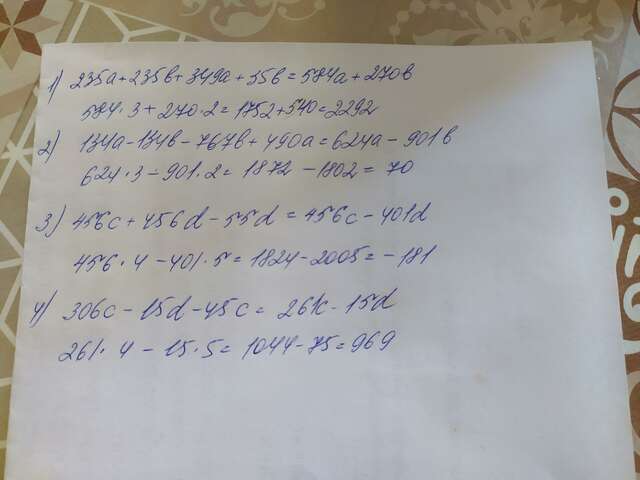 1) 235a+235b+349a+35b=584a+270b
584·3+270·2=1752+540=2292
2) 134a-134b-767b+490a=624a-901b
624·3-901·2=1872-1802=70
3) 456c+456d-55d=456c-401d
456·4-401·5=1824-2005=-181
4) 306c-15d-45c=261c-15d
261·4-15·5=1044-75=969